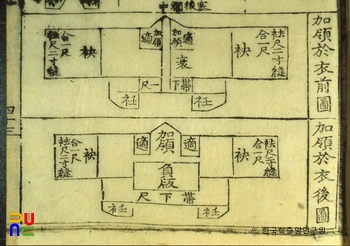 加領於衣前圖
袪尺二寸縫
合一尺
袂
適
加領
適
衰
袂
合一尺
袪尺二寸縫
帶下一尺
衽
衽
加領於衣後圖
袪尺二寸縫
合一尺
袂
適
加領
適
負版
袂
合一尺
袪尺二寸縫
帶下尺
衽
衽
四三